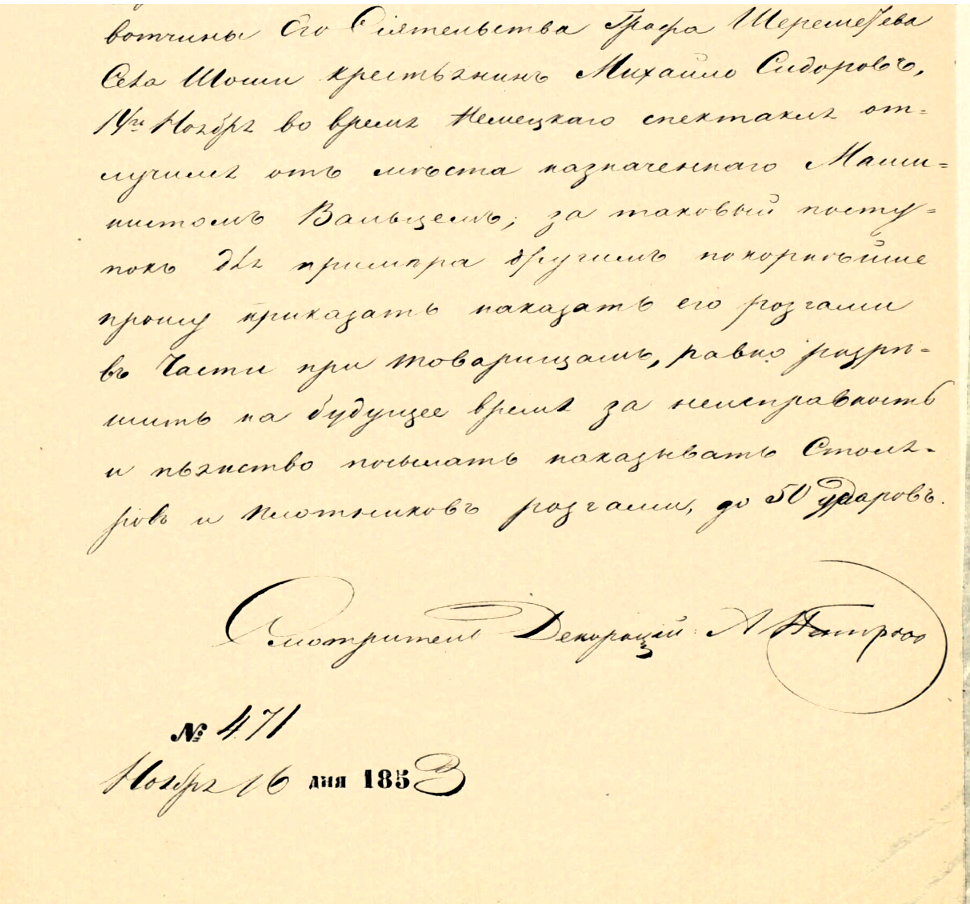 вотчины Его Сіятельства Графа Шереметева
Села Шоши крестьянинъ Михайло Сидоровъ,
14го Ноября во время Немецкаго спектакля от-
лучился отъ мѣста назначеннаго Маши-
нистомъ Вальцемъ; за таковый посту-
покъ для примѣра другимъ покорнѣйше
прошу приказать наказать его розгами
въ Части при товарищамъ, равно разрѣ-
шить на будущее время за неисправность
и пьянство посылать наказывать Столя-
ровъ и плотниковъ розгами, до 50 ударовъ.
Смотритель Декорацій А
№ 471
Ноября 16 дня 1853